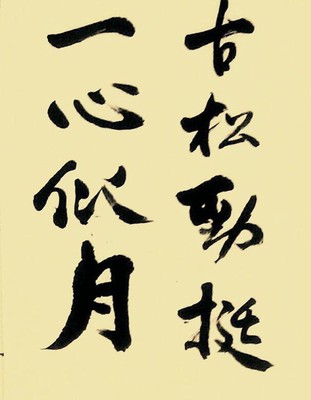 古松勁挺
一心似月